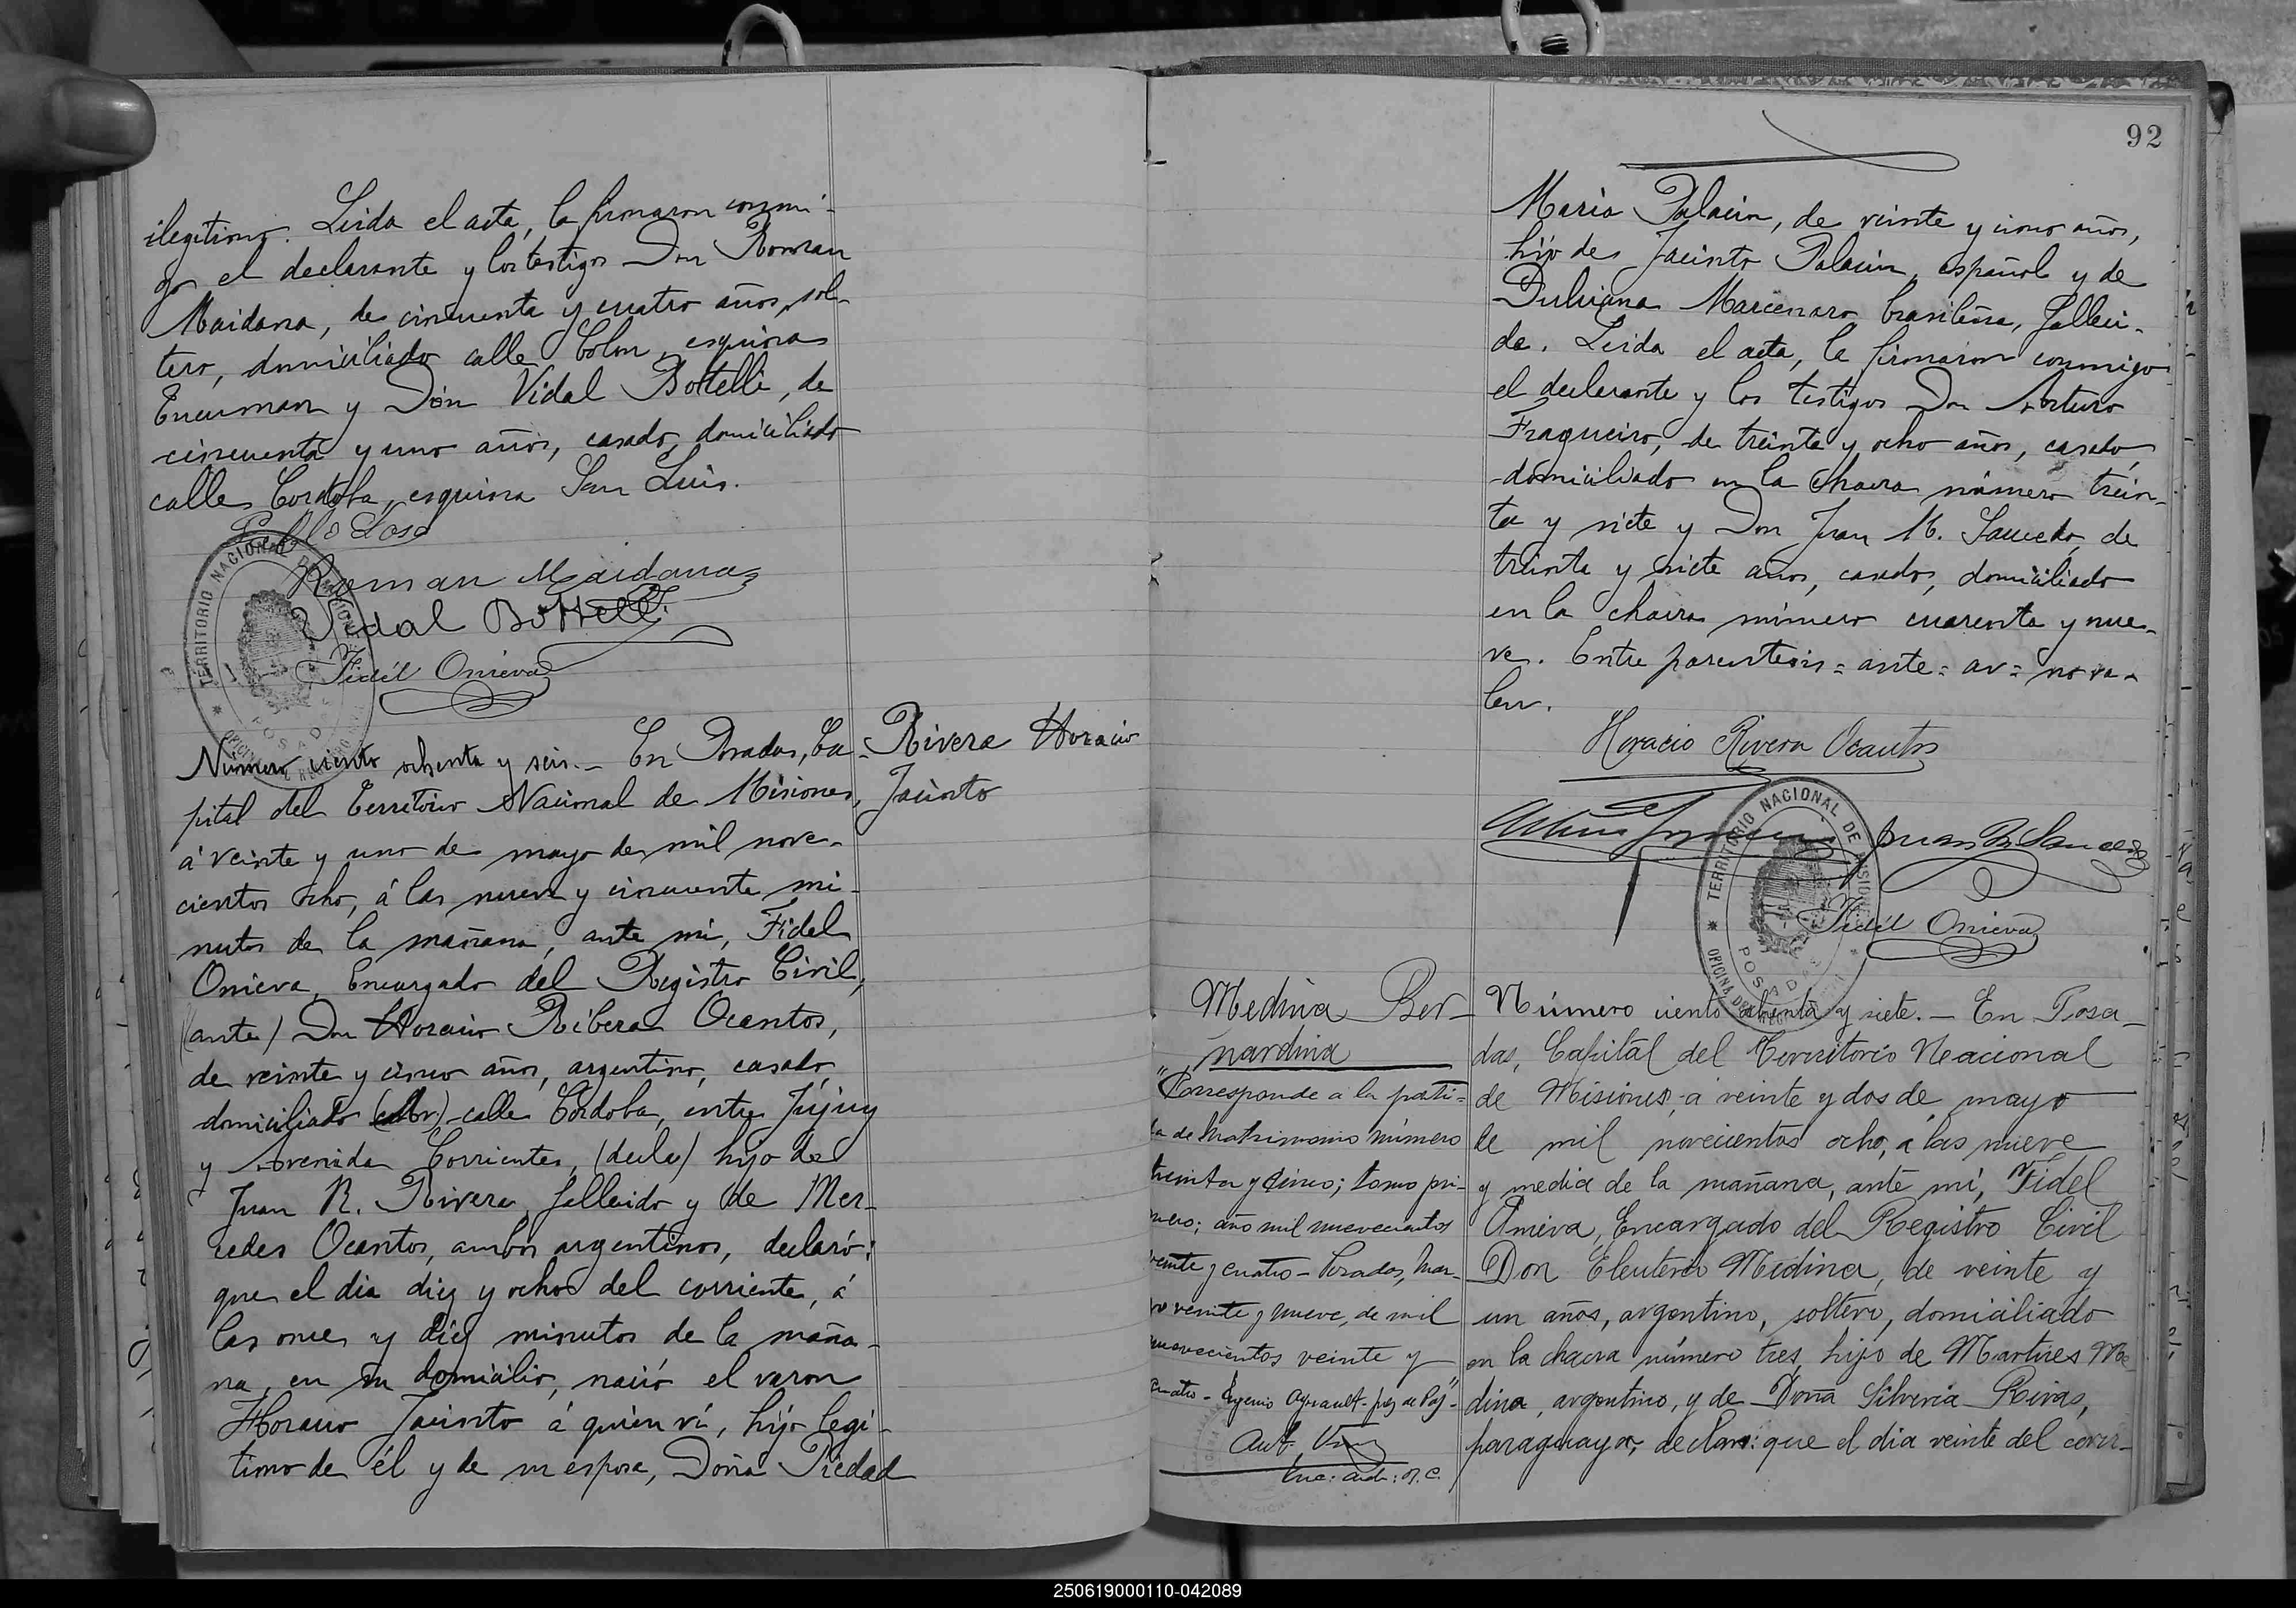 ilegitimo. Leida el acta, la firmaron conmi-
go el declarante y los testigos Don Roman
Maidana, de cincuenta y cuatro años, sol-
tero, domiciliado calle Colon, esquina
Tucuman y Don Vidal Bottelli, de
cincuenta y uno años, casado, domiciliado
calle Cordoba, esquina San Luis.
Roman Maidana
Vidal Bottelli
Fidél Onieva
TERRITORIO NACIONAL DE MISIONES
POSADAS
Número ciento ochenta y seis. - En Posadas, Ca-
pital del Territorio Nacional de Misiones,
á veinte y uno de mayo de mil nove-
cientos ocho, á las nueve y cincuenta mi-
nutos de la mañana, ante mi, Fidel
Onieva, Encargado del Registro Civil,
(ante) Don Horacio Ribera Ocantos,
de veinte y cinco años, argentino, casado,
domiciliado calle Córdoba, entre Jujuy
y Avenida Corrientes, (decla) hijo de
Juan R. Rivera, fallecido y de Mer-
cedes Ocantos, ambos argentinos, declaró:
que el dia diez y ocho del corriente, á
las once y diez minutos de la maña-
na, en su domicilio, nació el varon
Horacio Jacinto á quien ví, hijo legi-
timo de él y de su esposa, Doña Piedad
Rivera Horacio
Jacinto
92
Maria Palacin, de veinte y cinco años,
hijo de Jacinto Palacin, español y de
Marcenaro brasileña, falleci-
da. Leida el acta, la firmaron conmigo
el declarante y los testigos Don Arturo
Fragueiro, de treinta y ocho años, casado,
domiciliado en la chacra número trein-
ta y siete y Don Juan M. Saucedo, de
treinta y siete años, casado, domiciliado
en la chacra número cuarenta y nue-
ve. Entre parentesis = ante = av = no va-
len.
Horacio Rivera Ocantos
Fidél Onieva
TERRITORIO NACIONAL DE MISIONES
OFICINA DEL REGISTRO CIVIL
POSADAS
Medina Ber-
nardina
"Corresponde a la parti-
da de Matrimonio número
treinta y cinco; tomo pri-
mero; año mil nuevecientos
veinte y cuatro - Posadas, Mar-
zo veinte y nueve, de mil
nuevecientos veinte y
cuatro - Eugenio - juez de Paz" -
Enc: R. C.
Número ciento ochenta y siete. - En Posa-
das, Capital del Territorio Nacional
de Misiones, a veinte y dos de mayo
de mil novecientos ocho, a las nueve
y media de la mañana, ante mí, Fidel
Onieva, Encargado del Registro Civil
Don Eleuterio Medina, de veinte y
un años, argentino, soltero, domiciliado
en la chacra número tres, hijo de Martires Me-
dina, argentino, y de Doña Silveria Rivas,
paraguaya, declaró: que el dia veinte del corri-
250619000110-042089